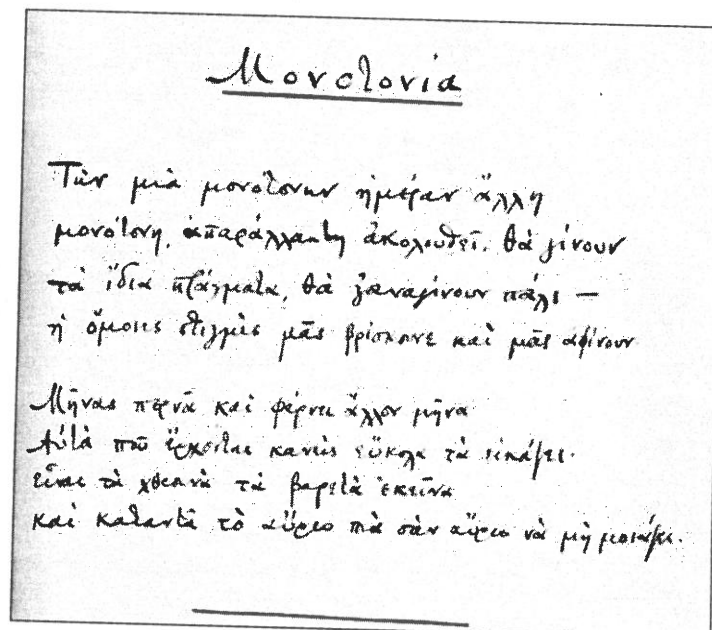 Μονοτονία
Την μιὰ μονότονην ἡμέραν ἄλλη
μονότονη, ἀπαράλλακτη ἀκολουθεῖ. Θὰ γίνουν
τὰ ἴδια πράγματα, θὰ ξαναγίνουν πάλι —
ἡ ὅμοιες στιγμὲς μᾶς βρίσκουνε καὶ μᾶς ἀφίνουν.
Μῆνας περνᾶ καὶ φέρνει ἄλλον μῆνα.
Αὐτὰ ποῦ ἔρχονται κανεὶς εὔκολα τὰ εἰκάζει·
εἶναι τὰ χθεσινὰ τὰ βαρετὰ ἐκεῖνα.
καὶ καταντᾶ τὸ αὔριο πιὰ σὰν αὔριο νὰ μὴ μοιάζει.